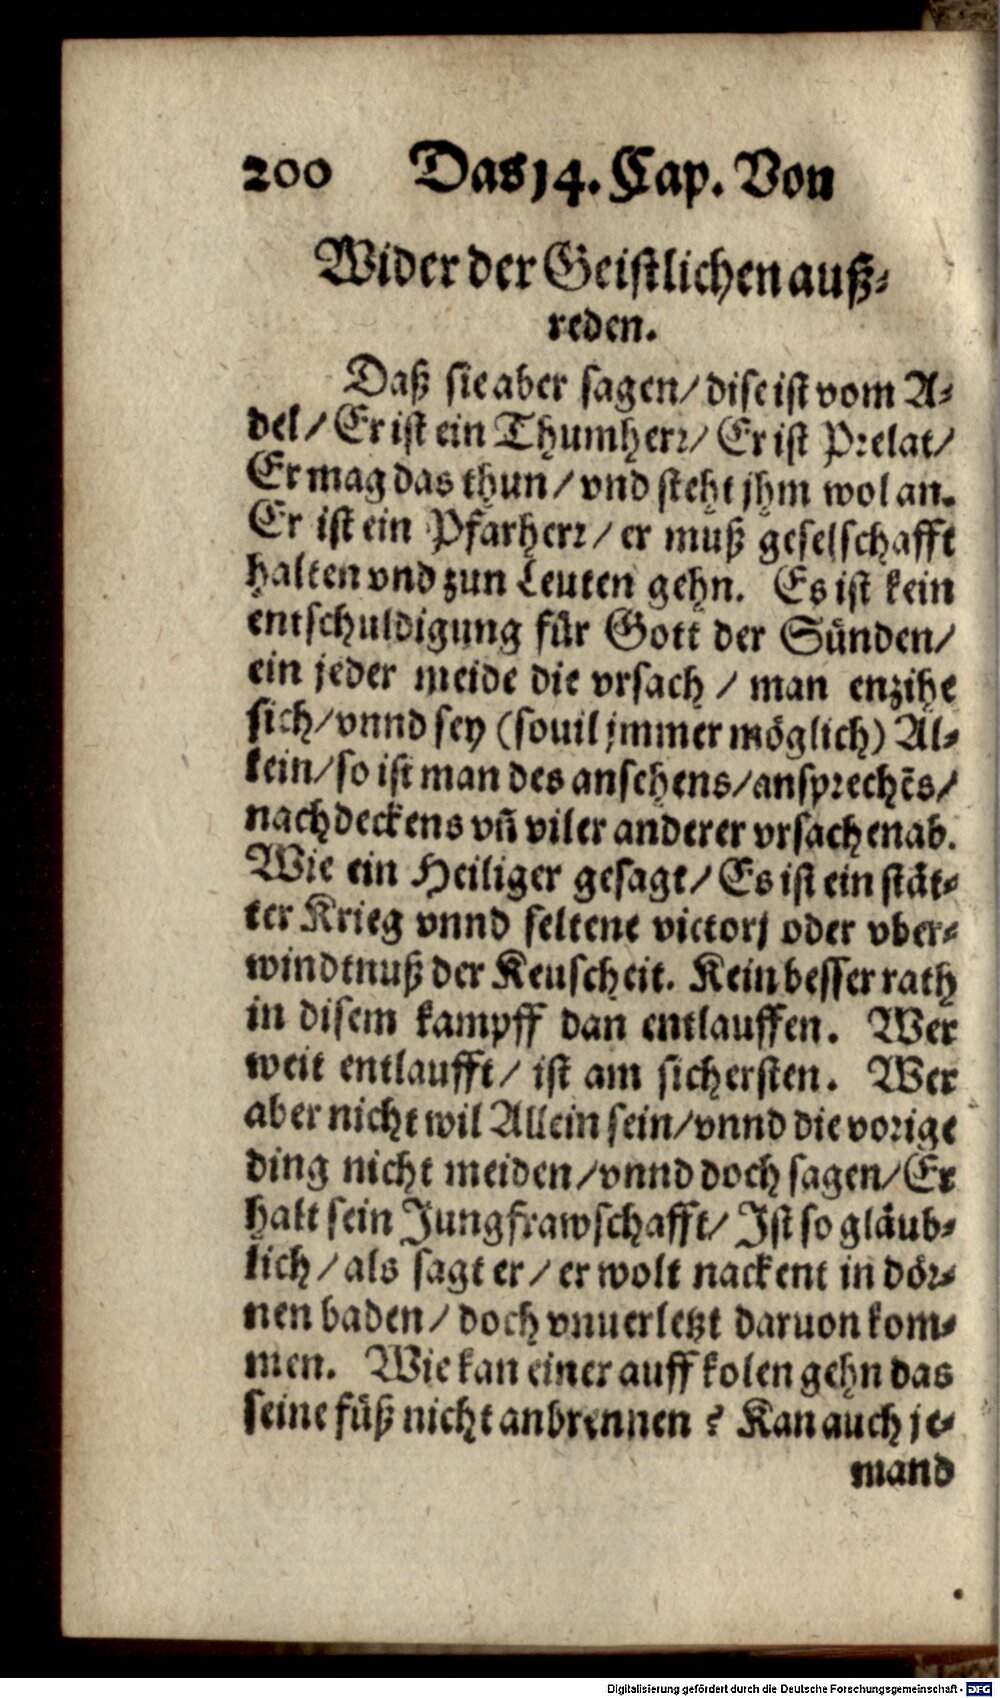 200 Das 14. Cap. Von
Wider der Geistlichen auß⸗
reden.
Daß sie aber sagen/ dise ist vom A⸗
del/ Er ist ein Thumherr/ Er ist Prelat/
Er mag das thun/ vnd steht jhm wol an.
Er ist ein Pfarherr/ er muß geselschafft
halten vnd zun Leuten gehn. Es ist kein
entschuldigung für Gott der Sünden/
ein jeder meide die vrsach/ man enzihe
sich/ vnnd sey (souil jmmer möglich) Al⸗
lein/ so ist man des ansehens/ ansprechēs/
nachdeckens vñ viler anderer vrsachen ab.
Wie ein Heiliger gesagt/ Es ist ein stät⸗
ter Krieg vnnd seltene victorj oder vber⸗
windtnuß der Keuscheit. Kein besser rath
in disem kampff dan entlauffen. Wer
weit entlaufft/ ist am sichersten. Wer
aber nicht wil Allein sein/ vnnd die vorige
ding nicht meiden/ vnnd doch sagen/ Er
halt sein Jungfrawschafft/ Ist so gläub⸗
lich/ als sagt er/ er wolt nackent in dör⸗
nen baden/ doch vnuerletzt daruon kom⸗
men. Wie kan einer auff kolen gehn das
seine füß nicht anbrennen? Kan auch je⸗
mand
Digitalisierung gefördert durch die Deutsche Forschungsgemeinschaft - DFG